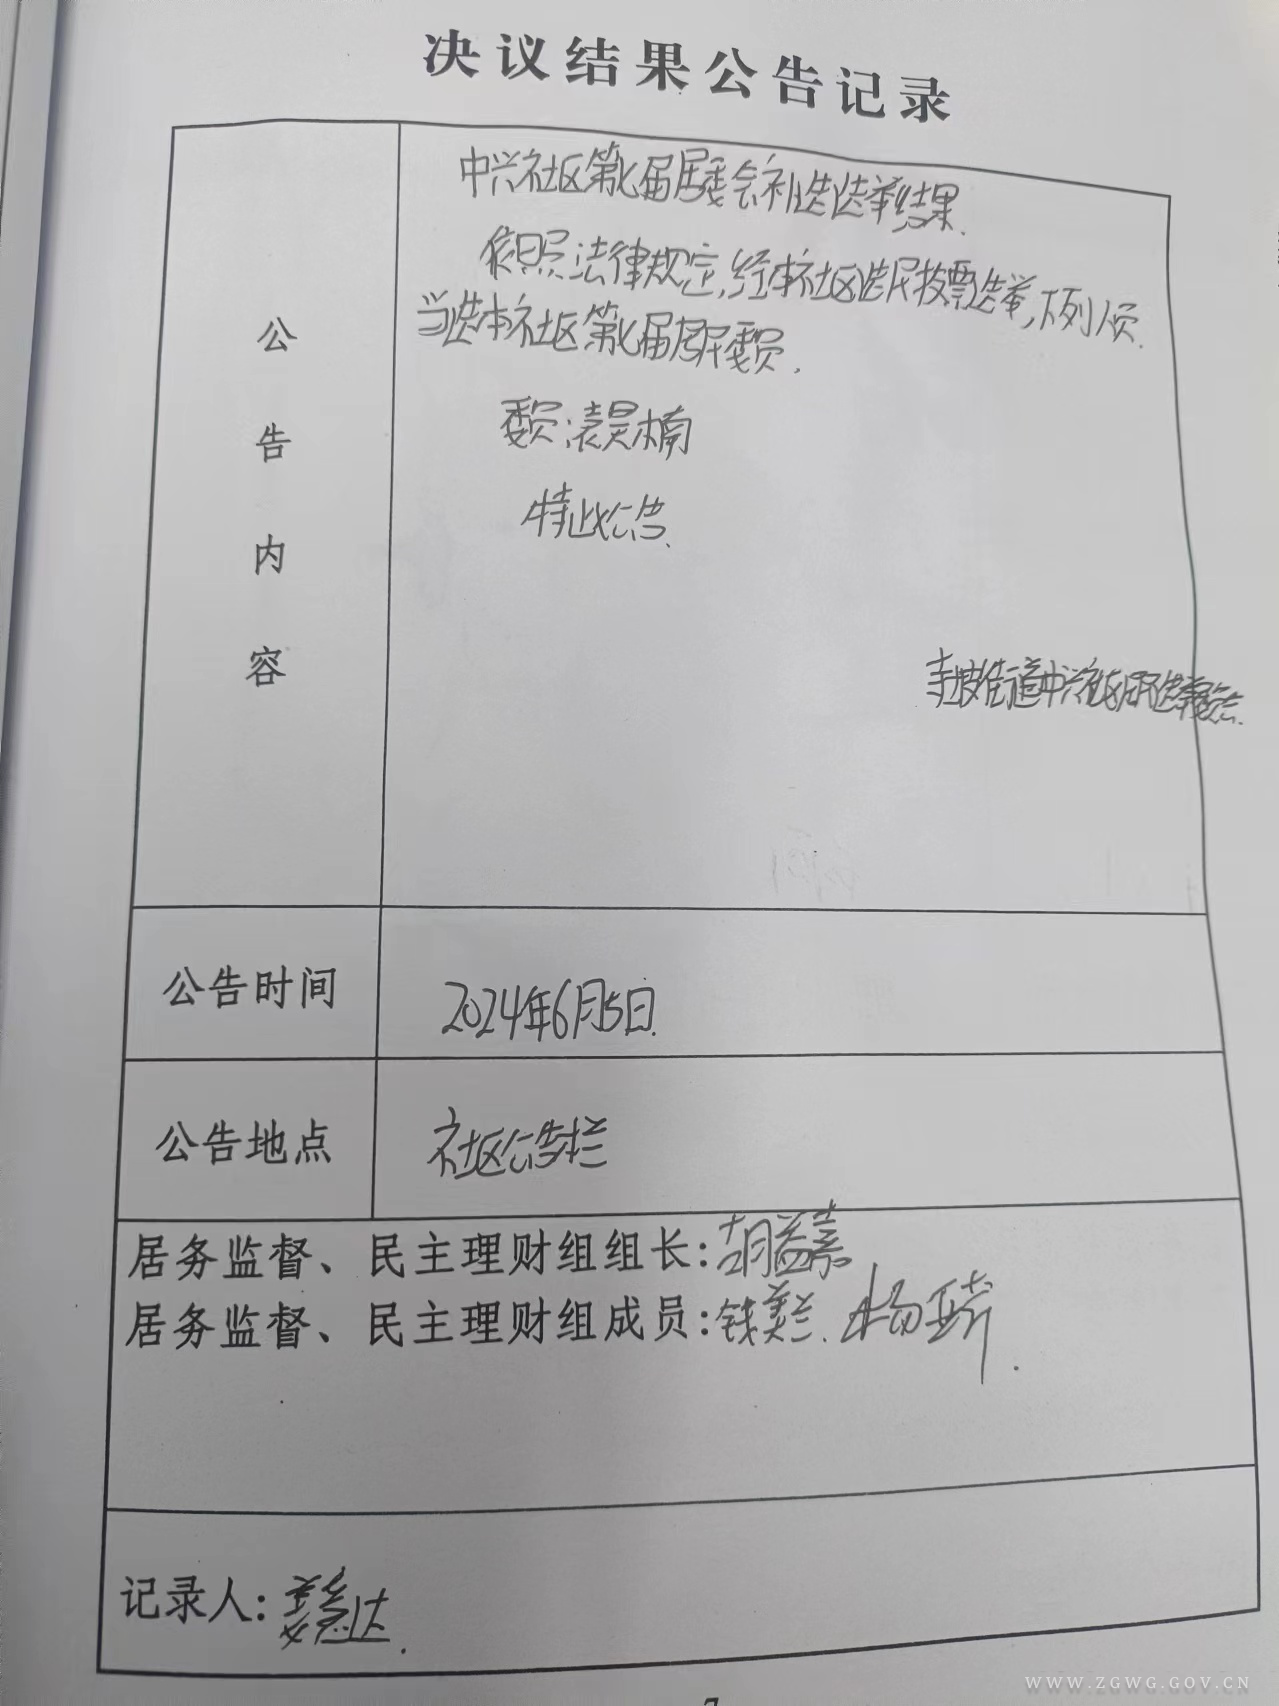 决议结果公告记录
公告内容
中兴社区第七届居委会补选选举结果.
依照法律规定,经本社区选民投票选举,下列人员
当选本社区第七届居民委员.
委员:袁昊楠
特此公告.
寺坡街道中兴社区居民选举委员会.
公告时间
2024年6月5日.
公告地点
社区公告栏
居务监督、民主理财组组长:胡益嘉
居务监督、民主理财组成员:钱美兰.杨
记录人:
7
WWW.ZGWG.GOV.CN